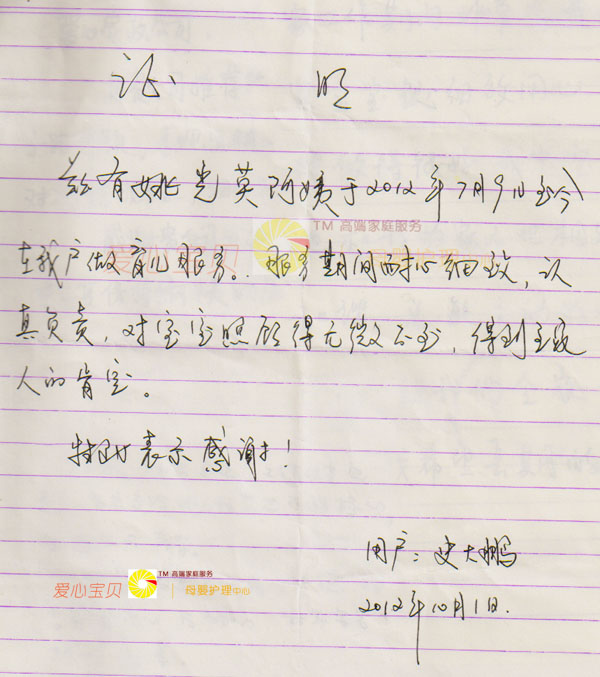 证 明
兹有姚光英阿姨于2012年7月9日至今
TM 高端家庭服务
在我户做育儿服务。服务期间耐心细致,认
真负责,对宝宝照顾得无微不至,得到家
人的肯定。
特此表示感谢!
用户:史大鹏
2012年10月1日.
TM 高端家庭服务
爱心宝贝 母婴护理中心